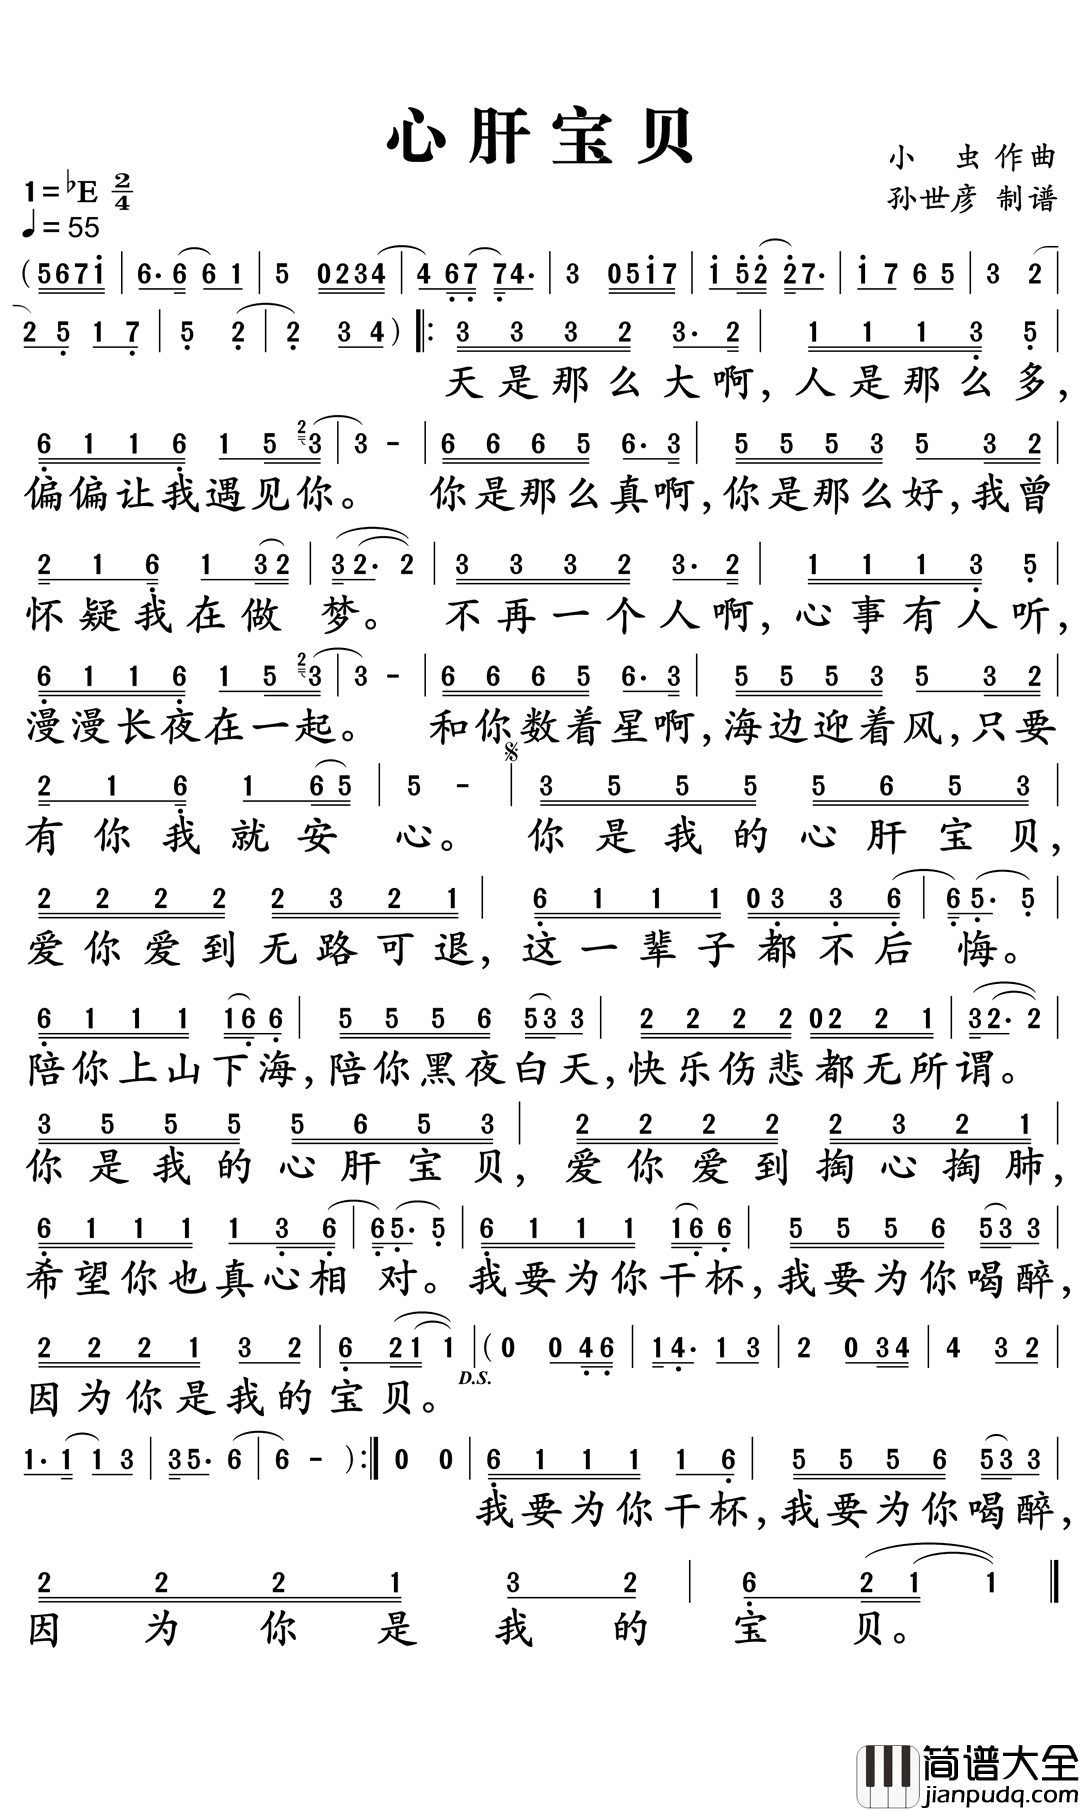 心肝宝贝
小 虫 作曲
1=♭E 2/4
孙世彦 制谱
♩=55
(5671̇ | 6. 6 6 1 | 5 0234 | 4 67 74. | 3 051̇7 | 1̇ 52̇ 2̇7. | 1̇ 7 6 5 | 3 2 |
2 5 1 7 | 5 2 | 2 3 4 ) |: 3 3 3 2 3. 2 | 1 1 1 3 5 |
天是那么大啊,人是那么多,
6 1 1 6 1 5 2 3 | 3 - | 6 6 6 5 6. 3 | 5 5 5 3 5 3 2 |
偏偏让我遇见你。 你是那么真啊,你是那么好,我曾
2 1 6 1 3 2 | 3 2. 2 | 3 3 3 2 3. 2 | 1 1 1 3 5 |
怀疑我在做梦。 不再一个人啊,心事有人听,
6 1 1 6 1 5 2 3 | 3 - | 6 6 6 5 6. 3 | 5 5 5 3 5 3 2 |
漫漫长夜在一起。 和你数着星啊,海边迎着风,只要
2 1 6 1 6 5 | 5 - | 3 5 5 5 5 6 5 3 |
有你我就安心。 你是我的心肝宝贝,
2 2 2 2 2 3 2 1 | 6 1 1 1 0 3 3 6 | 6 5. 5 |
爱你爱到无路可退,这一辈子都不后悔。
6 1 1 1 1 6 6 | 5 5 5 6 5 3 3 | 2 2 2 2 0 2 2 1 | 3 2. 2 |
陪你上山下海,陪你黑夜白天,快乐伤悲都无所谓。
3 5 5 5 5 6 5 3 | 2 2 2 2 2 3 2 1 |
你是我的心肝宝贝,爱你爱到掏心掏肺,
6 1 1 1 1 3 6 | 6 5. 5 | 6 1 1 1 1 6 6 | 5 5 5 6 5 3 3 |
希望你也真心相对。我要为你干杯,我要为你喝醉,
2 2 2 1 3 2 | 6 2 1 1 | (0 0 4 6 | 1 4. 1 3 | 2 0 3 4 | 4 3 2 |
D.S.
因为你是我的宝贝。
1. 1 1 3 | 3 5. 6 | 6 - ) :| 0 0 | 6 1 1 1 1 6 | 5 5 5 6 5 3 3 |
我要为你干杯,我要为你喝醉,
2 2 2 1 3 2 | 6 2 1 1 ‖
因为你是我的宝贝。
简谱大全
jianpudq.com